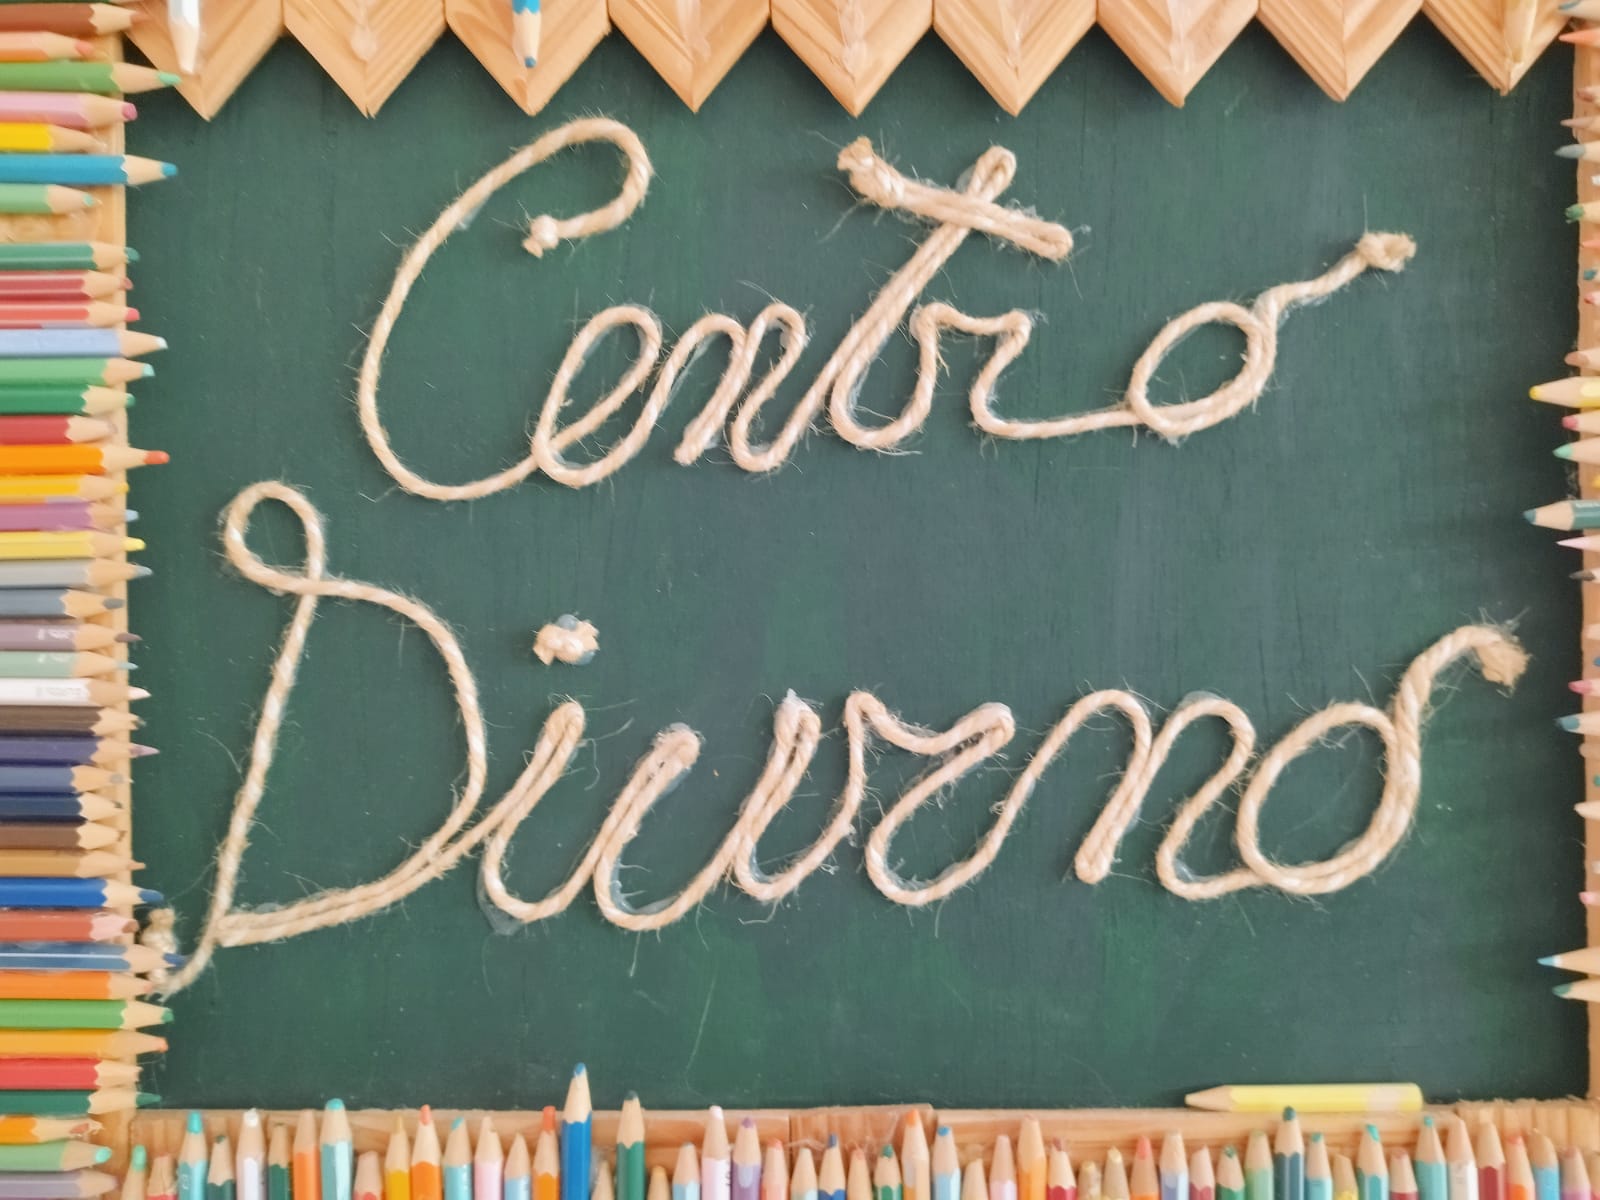 Centro
Diurno